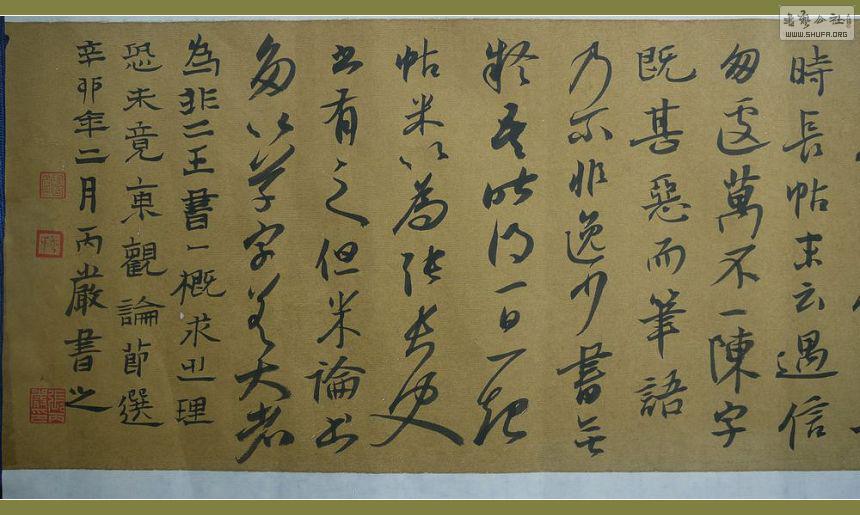 時長帖末云遇信
匆遽萬不一陳字
既甚惡而筆語
乃尔非逸少書無
疑吾昨得一日一起
帖米以為張長史
書有之但米論書
多以草字差大者
為非二王書一概求之理
恐未竟東觀論節選
辛卯年二月丙巖書之
書藝公社
WWW.SHUFA.ORG